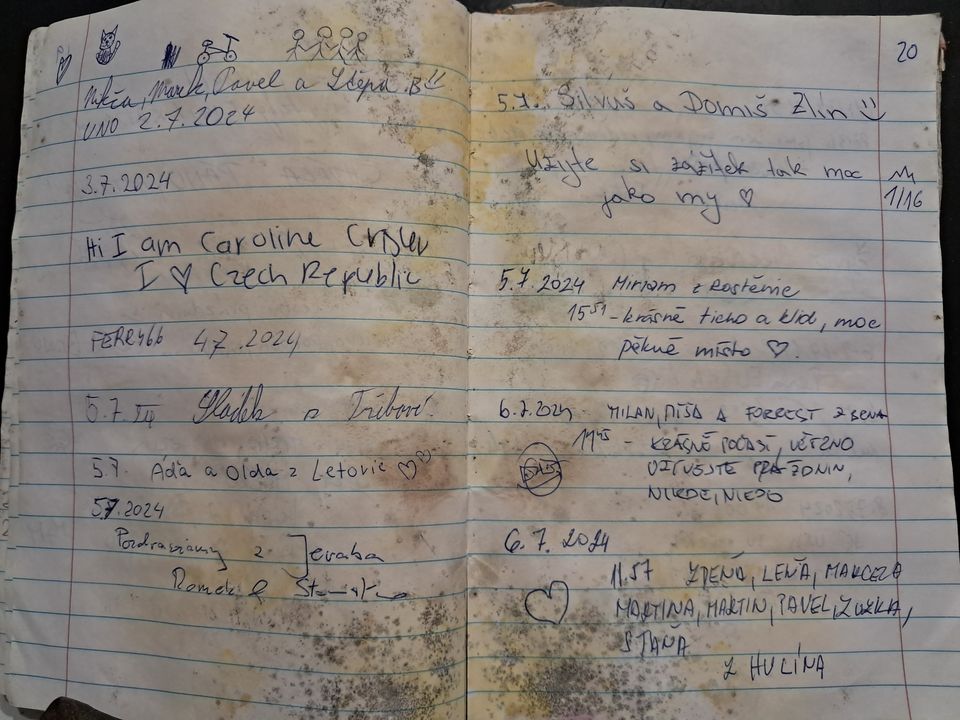 Marek, Pavel a Štěpa
UNO 2.7.2024
3.7.2024
Hi I am Caroline
I ♡ Czech Republic
FERRY66 4.7.2024
5.7. Sládek z Třebové.
5.7. Áďa a Olda z Letovic ♡♡
5.7.2024
z Jevíčka
Romek &
20
5.7. Silvuš a Domiš Zlín :)
Užijte si zážitek tak moc
jako my ♡
1/16
5.7.2024 Miriam z Rostěnic
15⁵¹ - krásné ticho a klid, moc
pěkné místo ♡.
6.7.2024 - MILAN, MÍŠA A FORREST Z BRNA
11⁴⁵ - KRÁSNÉ POČASÍ, VĚTRNO
UŽÍVEJTE PRÁZDNIN,
6.7.2024
11.57 ZDEŇA, LENĚA, MARCELA
MARTINA, MARTIN, PAVEL, ZUZKA,
STAŇA
Z HULÍNA